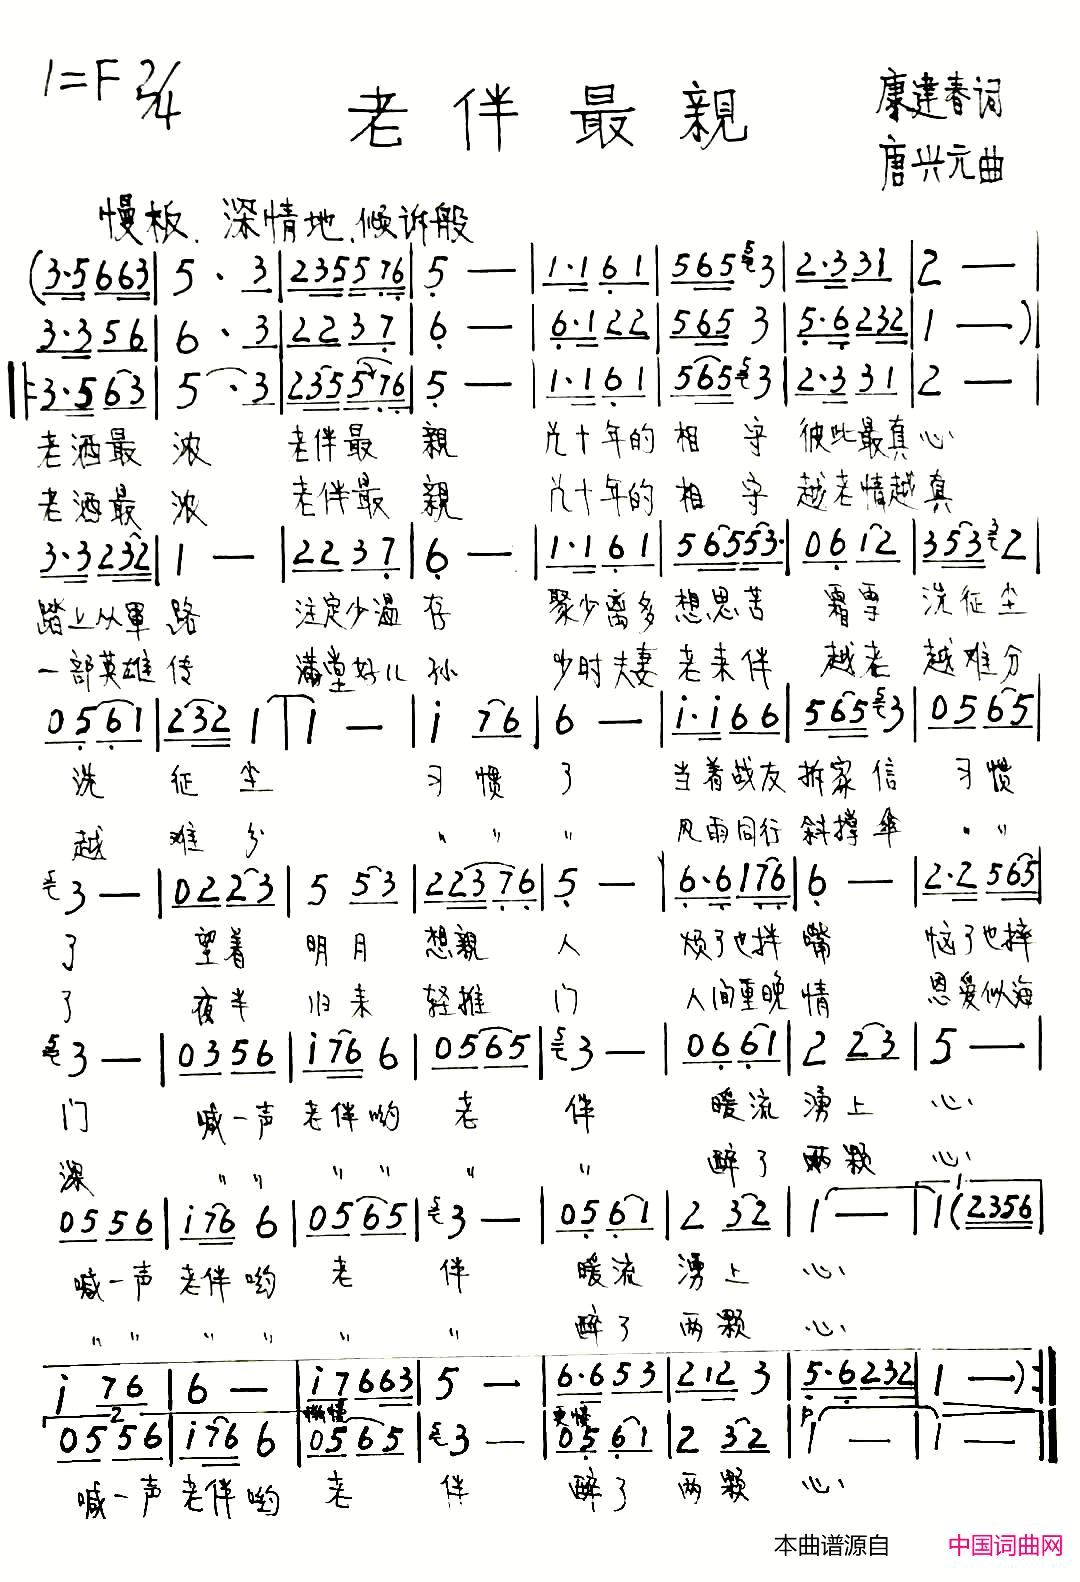 1=F 2/4
老伴最親
康建春词
唐兴元曲
慢板、深情地、倾诉般
(3·5 663 | 5 · 3 | 235576 | 5 — | 1·161 | 565 5 3 | 2·331 | 2 — |
3·356 | 6 · 3 | 2237 | 6 — | 6·122 | 565 3 | 5·6232 | 1 — ) |
‖: 3·563 | 5 · 3 | 235576 | 5 — | 1·161 | 565 5 3 | 2·331 | 2 — |
老酒最 浓 老伴最 親 几十年的 相 守 彼此最真心
老酒最 浓 老伴最 親 几十年的 相 守 越老情越真
3·3232 | 1 — | 2237 | 6 — | 1·161 | 56553· | 0612 | 353 3 2 |
踏上从軍 路 注定少温 存 聚少离多 想思苦 霜雪 洗征尘
一部英雄 传 满堂好儿 孙 少时夫妻 老来伴 越老 越难分
0561 | 232 1 | 1 — | i 76 | 6 — | i·i66 | 565 5 3 | 0565 |
洗 征 尘 习 惯 了 当着战友 拆家信 习惯
越 难 分 " " " 风雨同行 斜撑伞 " "
5 3 — | 0223 | 5 53 | 22376 | 5 — | 6·6176 | 6 — | 2·2565 |
了 望着 明月 想親 人 烦了也拌 嘴 恼了也摔
了 夜半 归来 轻推 门 人间重晚 情 恩爱似海
5 3 — | 0356 | i76 6 | 0565 | 5 3 — | 0661 | 2 23 | 5 — |
门 喊一声 老伴哟 老 伴 暖流 湧上 心
深 " " " " " " 醉了 两颗 心
0556 | i76 6 | 0565 | 5 3 — | 0561 | 2 32 | 1 — | 1 (2356 |
喊一声 老伴哟 老 伴 暖流 湧上 心
" " " " " " 醉了 两颗 心
i 76 | 6 — | i7663 | 5 — | 6·653 | 212 3 | 5·6232 | 1 — ) :‖
2 渐慢 更慢 P
0556 | i76 6 | 0565 | 5 3 — | 0561 | 2 32 | 1 — | 1 — ‖
喊一声 老伴哟 老 伴 醉了 两颗 心
本曲谱源自 中国词曲网